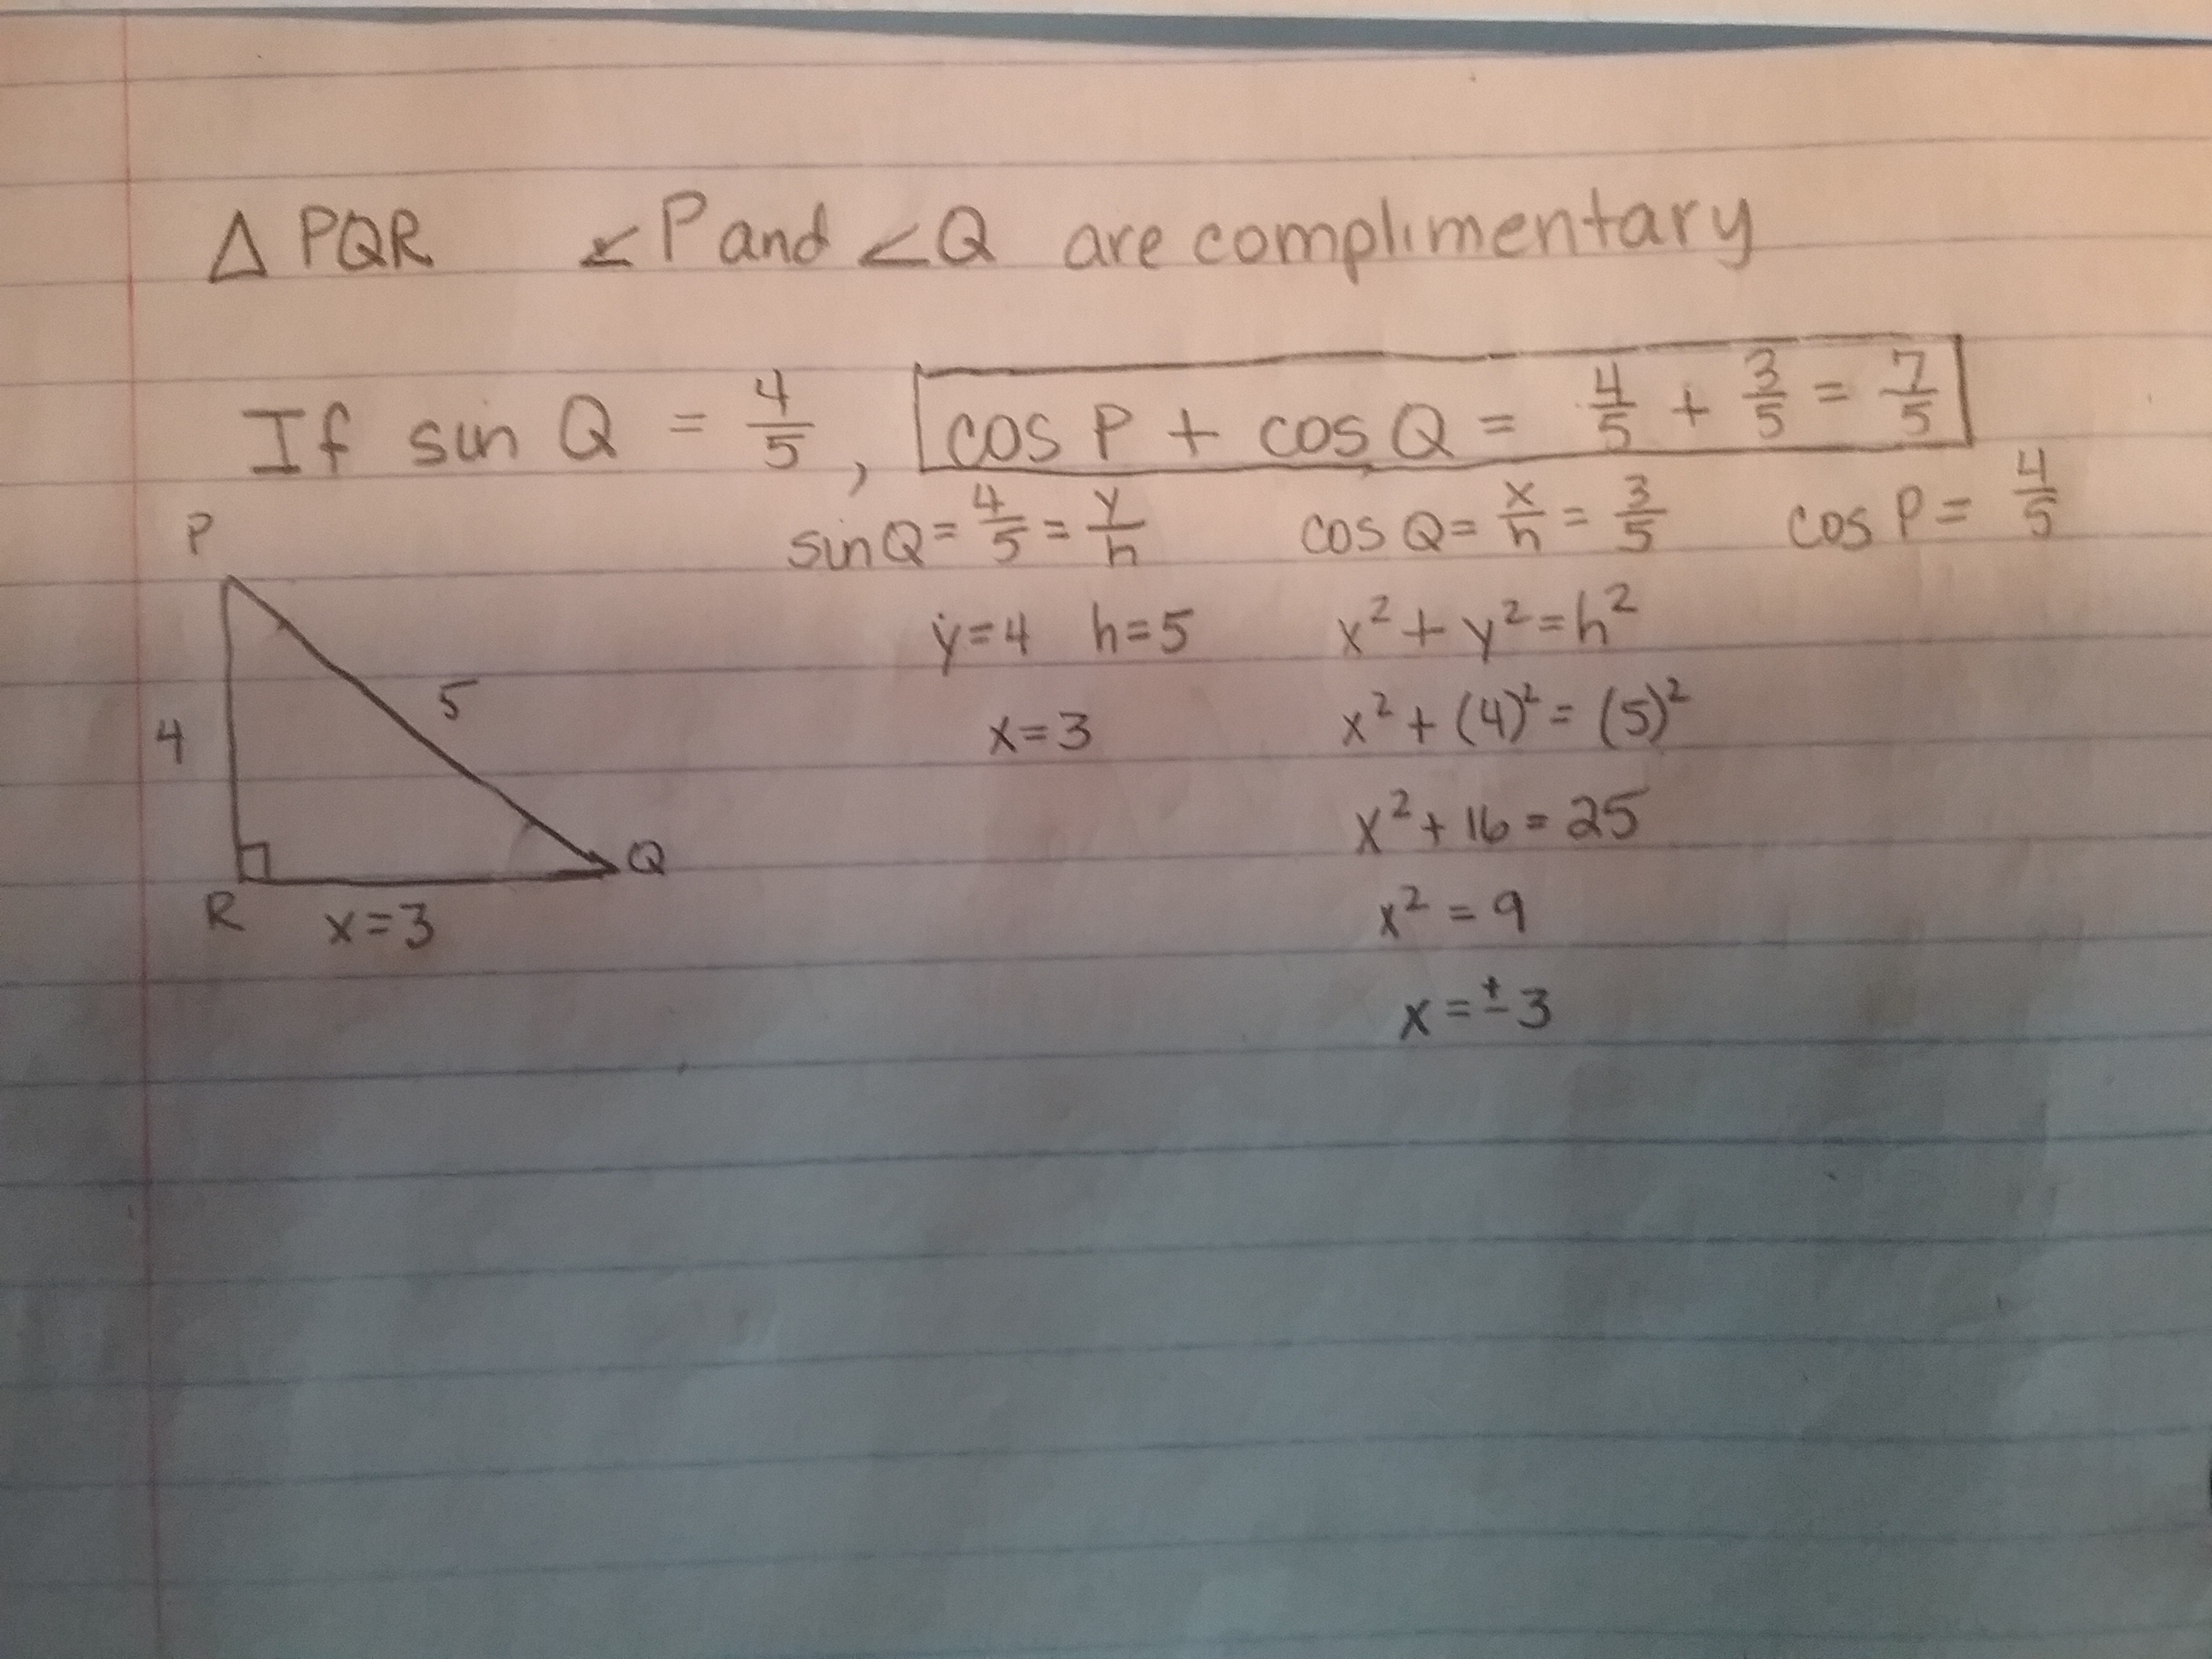 Δ PQR ∠P and ∠Q are complimentary
If sin Q = 4/5, cos P + cos Q = 4/5 + 3/5 = 7/5
sin Q = 4/5 = y/h cos Q = x/h = 3/5 cos P = 4/5
P
y = 4 h = 5 x² + y² = h²
5
4
x = 3 x² + (4)² = (5)²
x² + 16 = 25
Q
R x = 3
x² = 9
x = ± 3